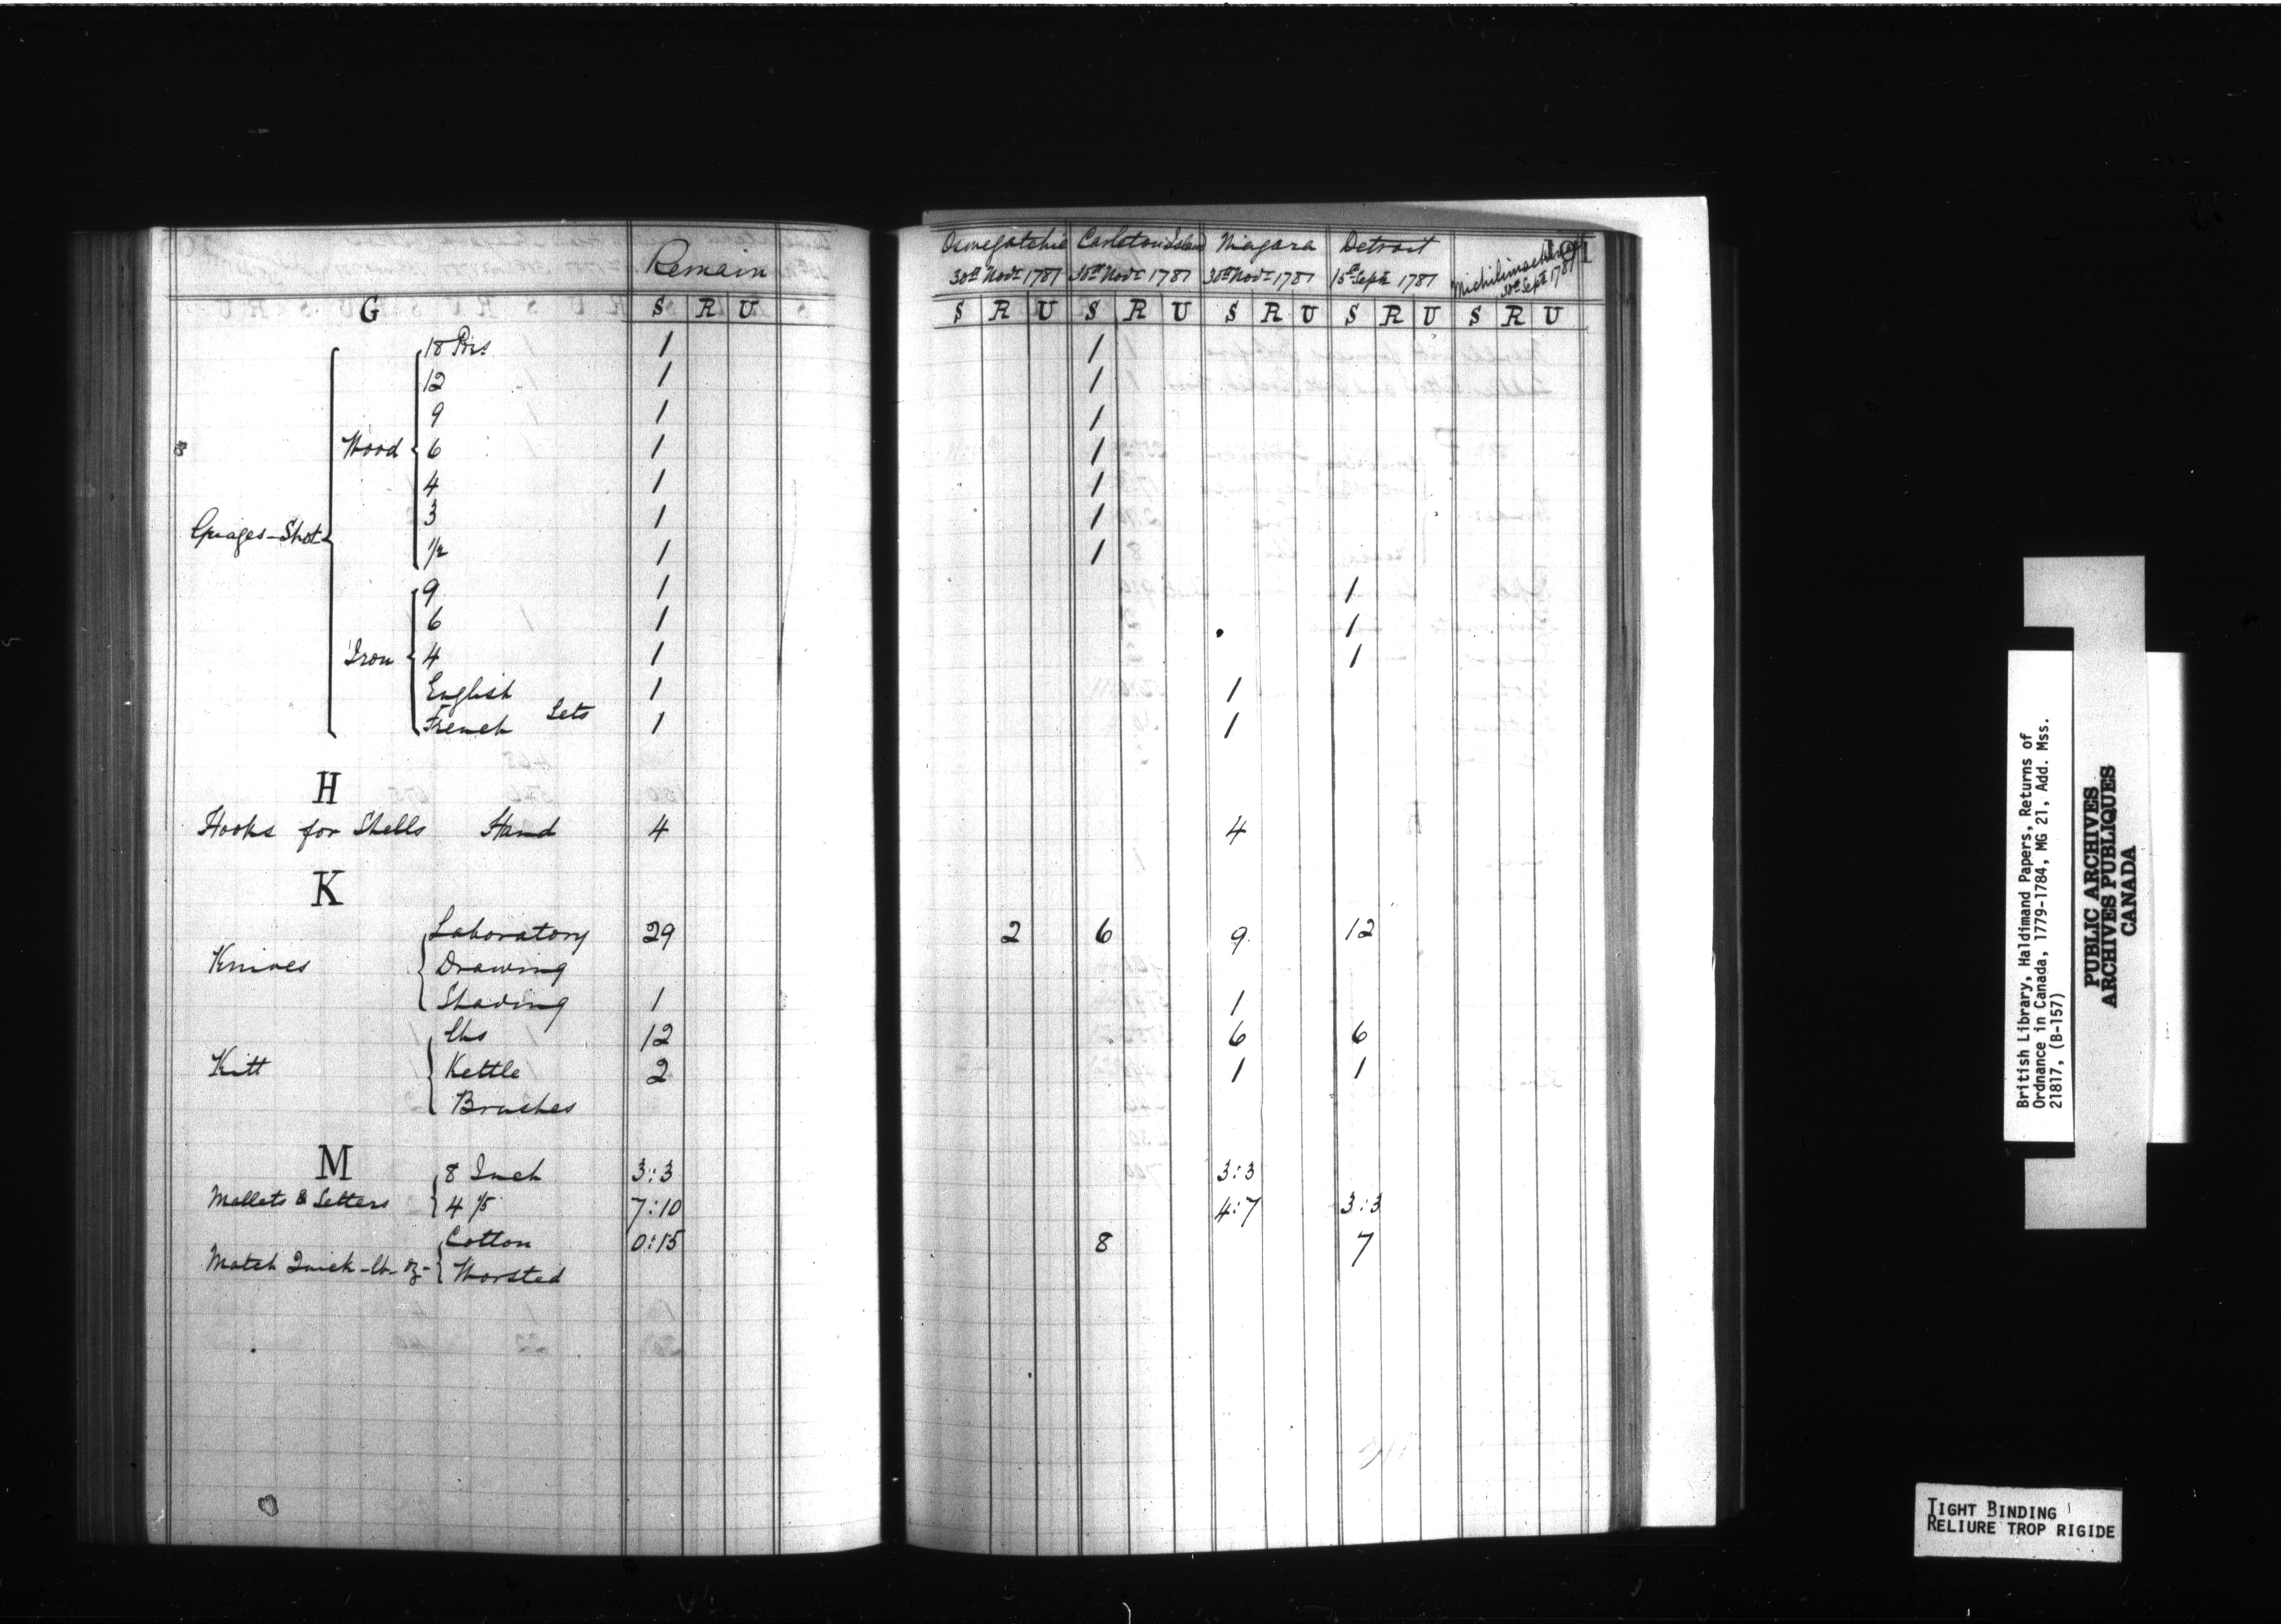 Remain
G S R U
18 Prs 1
12 1
9 1
Wood 6 1
4 1
3 1
Guages-Shot ½ 1
9 1
6 1
Iron 4 1
English 1
French Sets 1
H
Hooks for Shells Hand 4
K
Laboratory 29
Knives Drawing
Shaving 1
lbs 12
Kitt Kettle 2
Brushes
M 8 Inch 3:3
Mallets & Setters 4 ⅖ 7:10
Cotton 0:15
Match Quick-lb-oz- Worsted
191
Oswegatchie Carleton Island Niagara Detroit Michilimackinac
30th Novr 1781 30th Novr 1781 30th Novr 1781 15th Septr 1781 30th Septr 1781
S R U S R U S R U S R U S R U
1
1
1
1
1
1
1
1
1
1
1
1
4
2 6 9 12
1
6 6
1 1
3:3
4:7 3:3
8 7
British Library, Haldimand Papers, Returns of
Ordnance in Canada, 1779-1784, MG 21, Add. Mss.
21817, (B-157)
PUBLIC ARCHIVES
ARCHIVES PUBLIQUES
CANADA
TIGHT BINDING
RELIURE TROP RIGIDE